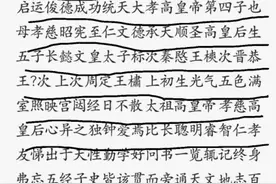 启运俊德成功统天大孝高皇帝第四子也
母孝慈昭宪至仁文德承天顺圣高皇后生
五子长懿文皇太子标次秦愍王樉次晋恭
王?次上次周定王橚上初生光气五色满
室照映宫闼经日不散太祖高皇帝孝慈高
皇后心异之独钟爱焉比长聪明睿智仁孝
友悌出于天性勤学好问书一览辄记终身
弗忘五经子史皆该贯而旁通天文地志百